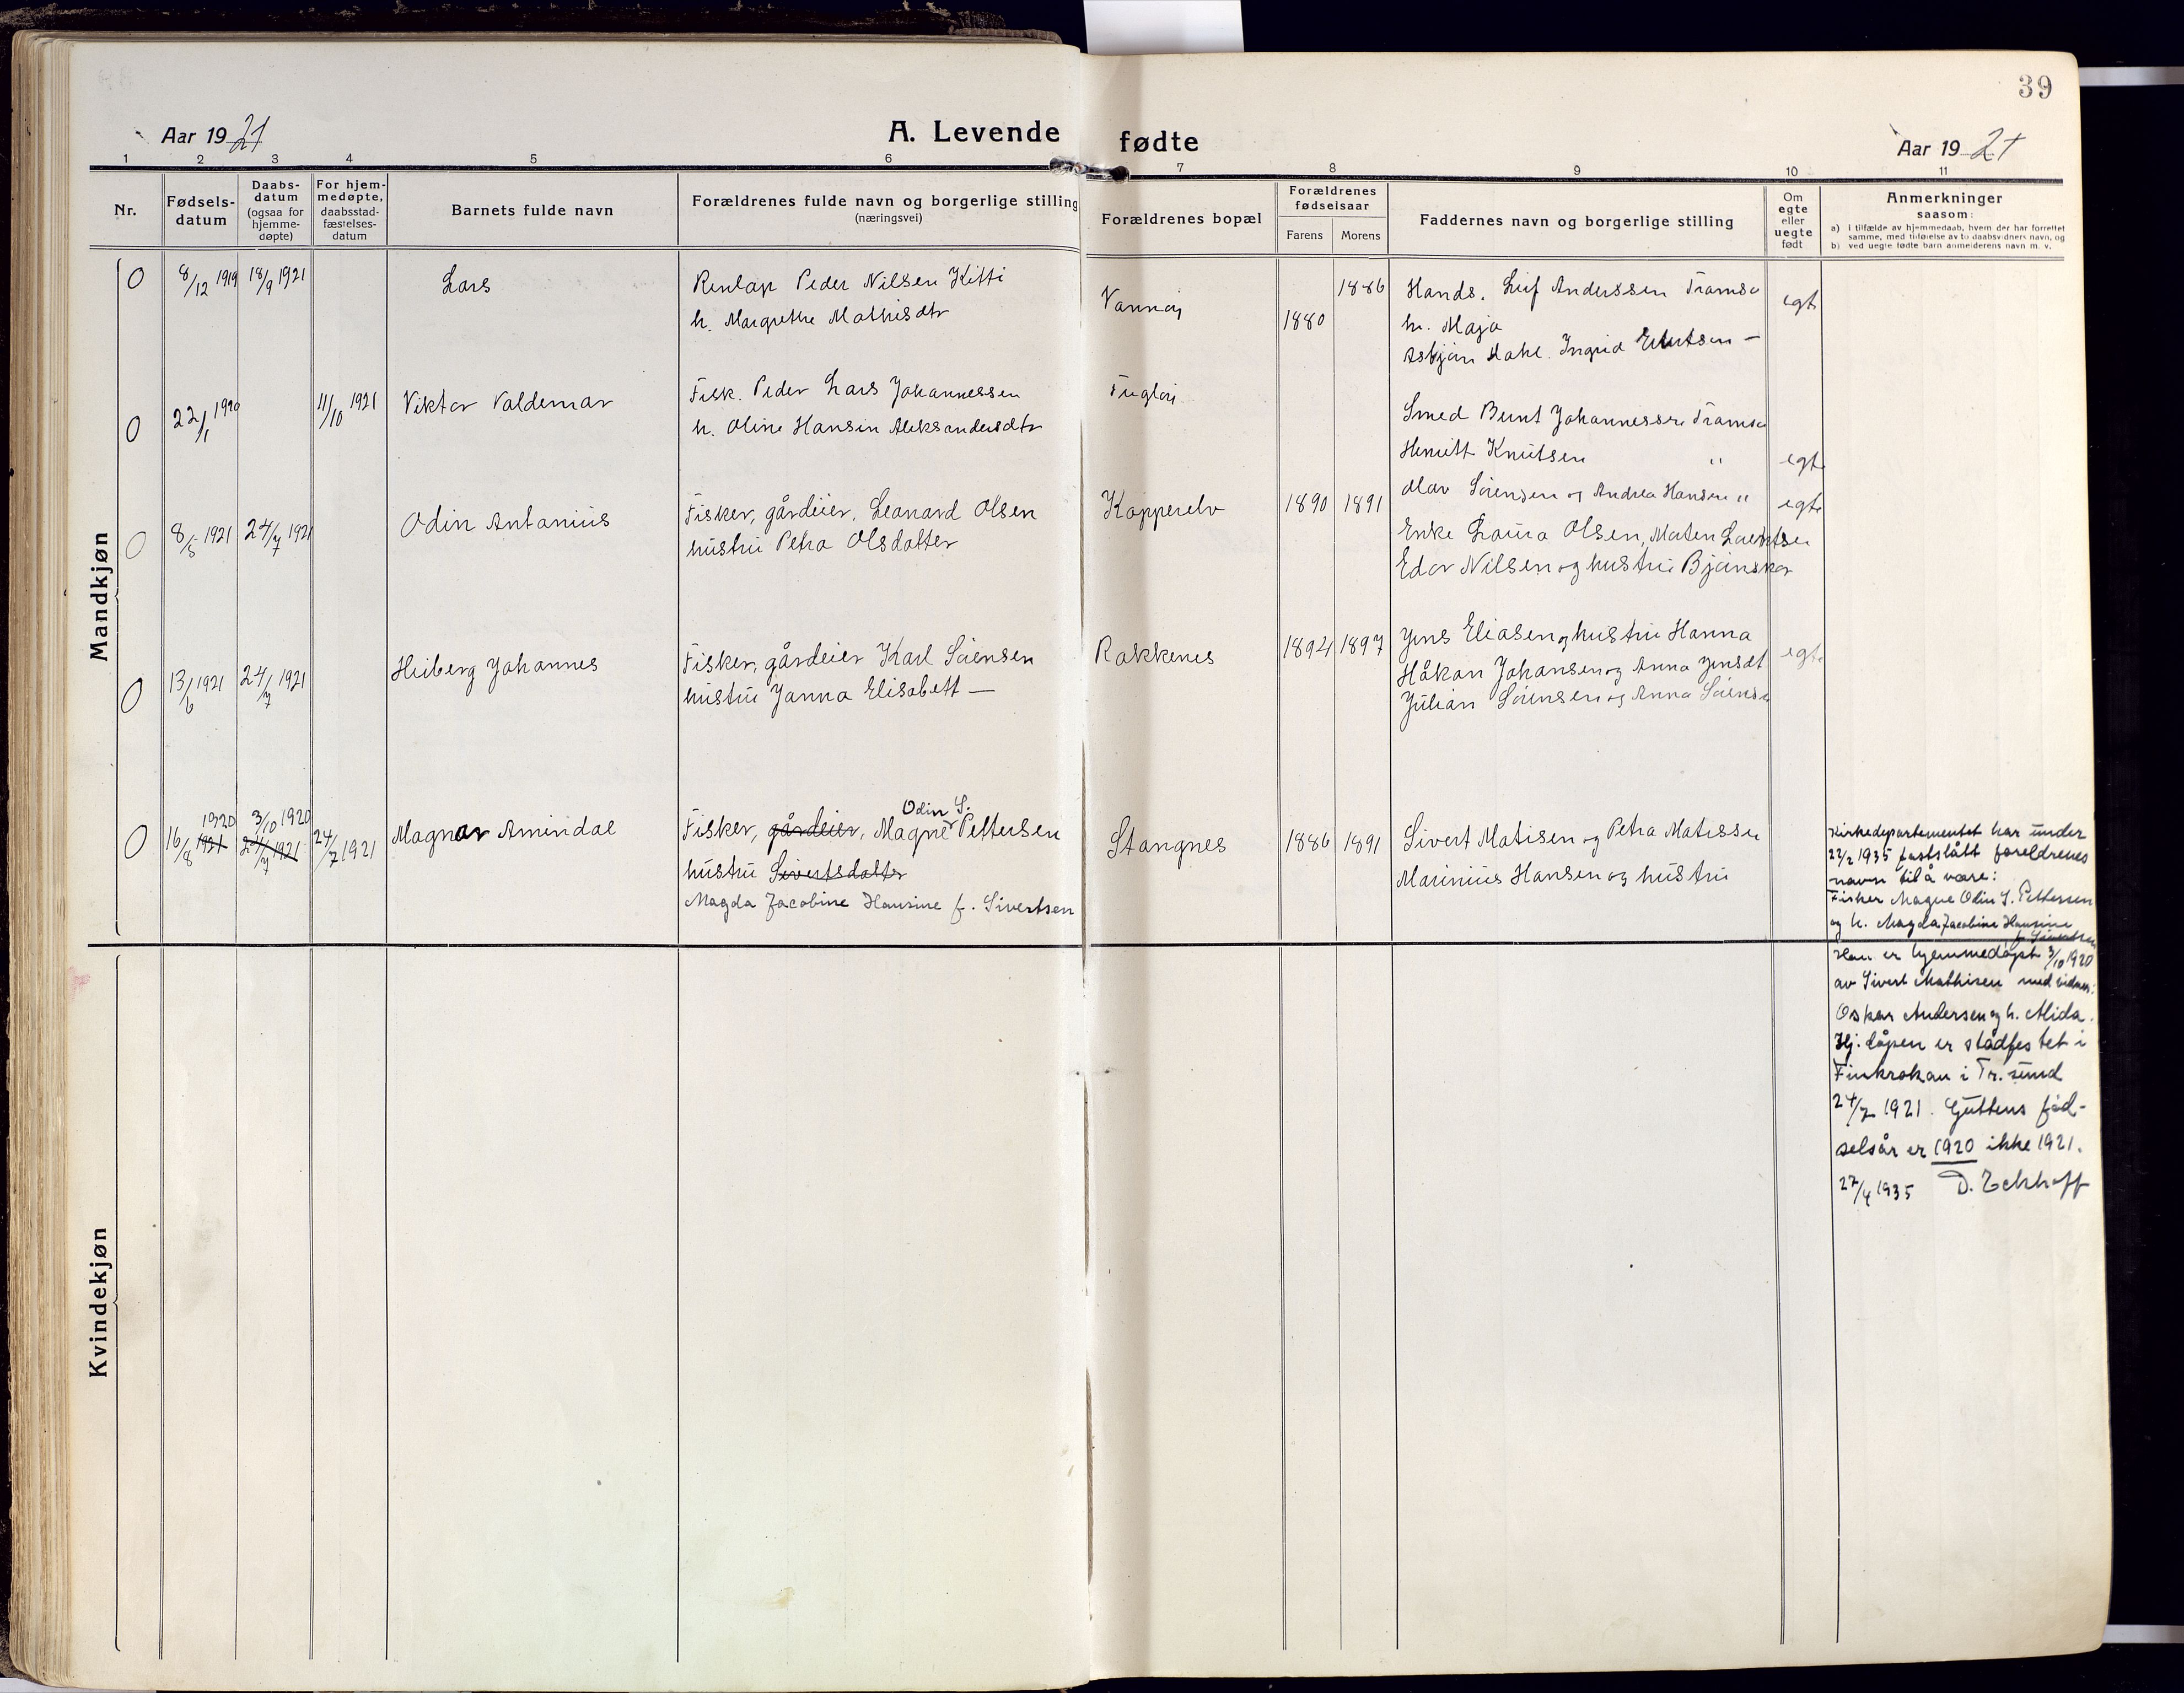 39
Aar 1921
A. Levende fødte
Aar 1921
1 2 3 4 5 6 7 8 9 10 11
Nr.
Fødsels-
datum
Daabs-
datum
(ogsaa for
hjemme-
døpte)
For hjem-
medøpte,
daabsstad-
fæstelses-
datum
Barnets fulde navn
Forældrenes fulde navn og borgerlige stilling
(næringsvei)
Forældrenes bopæl
Forældrenes
fødselsaar
Farens Morens
Faddernes navn og borgerlige stilling
Om
egte
eller
uegte
født
Anmerkninger
saasom:
a) I tilfælde av hjemmedaab, hvem der har forrettet
samme, med tilføielse av to daabsvidners navn, og
b) ved uegte fødte barn anmelderens navn m. v.
Mandkjøn
0 8/12 1919 18/9 1921 Lars
Renlap Peder Nilsen Kitti
h. Margrethe Mathisdtr
Vannøy
1880 1886
Hands. Leif Anderssen Tromsø
h. Maja
Asbjørn Dahl. Ingrid Evertsen —
egte
0 22/1 1920 11/10 1921 Viktor Valdemar
Fisk. Peder Lars Johannessen
h. Oline Hansin Aleksandersdtr
Fugløy
Smed Bernt Johannessen Tromsø
Henritt Knutsen "
Olav Sørensen og Andrea Hansen "
egte
0 8/5 1921 24/7 1921 Odin Antonius
Fisker, gårdeier, Leonard Olsen
hustru Petra Olsdatter
Kopperelv
1890 1891
Enke Laura Olsen, Marten Laentsen
Edor Nilsen og hustru Bjørnskar
egte
0 13/6 1921 24/7 1921 Heiberg Johannes
Fisker, gårdeier Karl Sørensen
hustru Janna Elisabett —
Rakkenes
1894 1897
Jens Eliasen og hustru Hanna
Håkon Johansen og Anna Jensdt
Julian Sørensen og Anna Sørensen
egte
0 16/8 1920 1921 3/10 1920 24/7 1921 24/7 1921 Magnar Amindal
Odin S.
Fisker, gårdeier, Magne Pettersen
hustru Sivertsdatter
Magda Jacobine Hansine f. Sivertsen
Stangnes
1886 1891
Sivert Matisen og Petra Matissen
Marinius Hansen og hustru
Kirkedepartementet har under
22/2 1935 fastslått foreldrenes
navn til å være:
Fisker Magne Odin S. Pettersen
og h. Magda Jacobine Hansine
f. Sivertsen
Han er hjemmedøpt 3/10 1920
av Sivert Mathisen med vidner:
Oskar Andersen og h. Alida.
Hj. dåpen er stadfestet i
Finkroken i Tr.sund
24/7 1921. Guttens fød-
selsår er 1920 ikke 1921.
27/4 1935 D. Eckhoff
Kvindekjøn